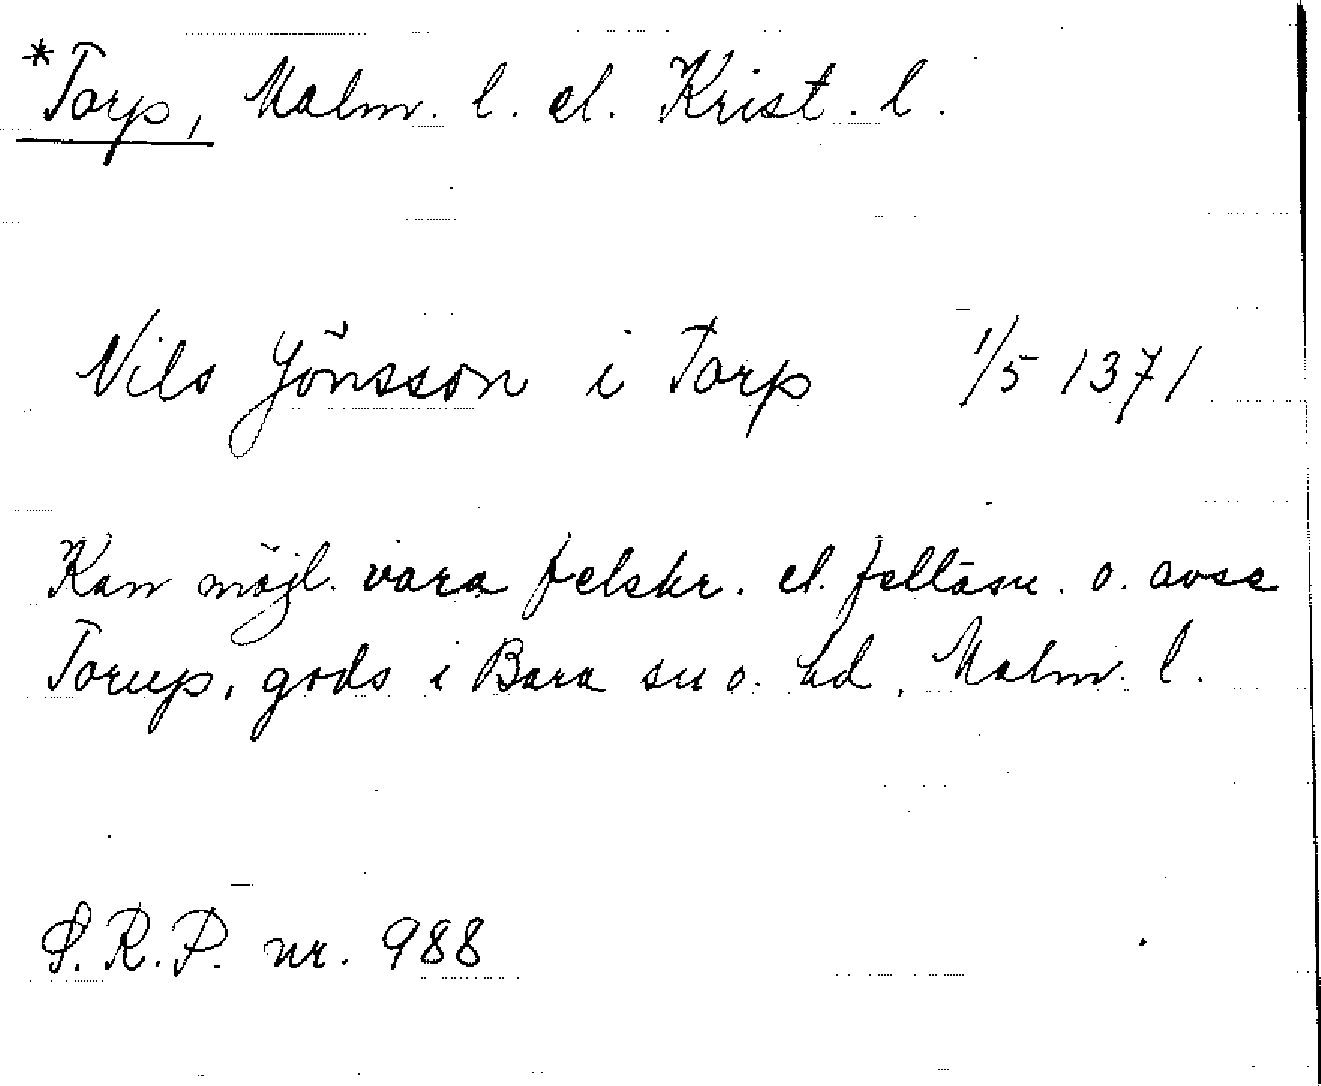 *Torp, Malm. l. el. Krist. l.
Nils Jönsson i Torp 1/5 1371
Kan möjl. vara felskr. el. felläsn. o. avse
Torup, gods i Bara sn o. hd, Malm. l.
S.R.P. nr. 988